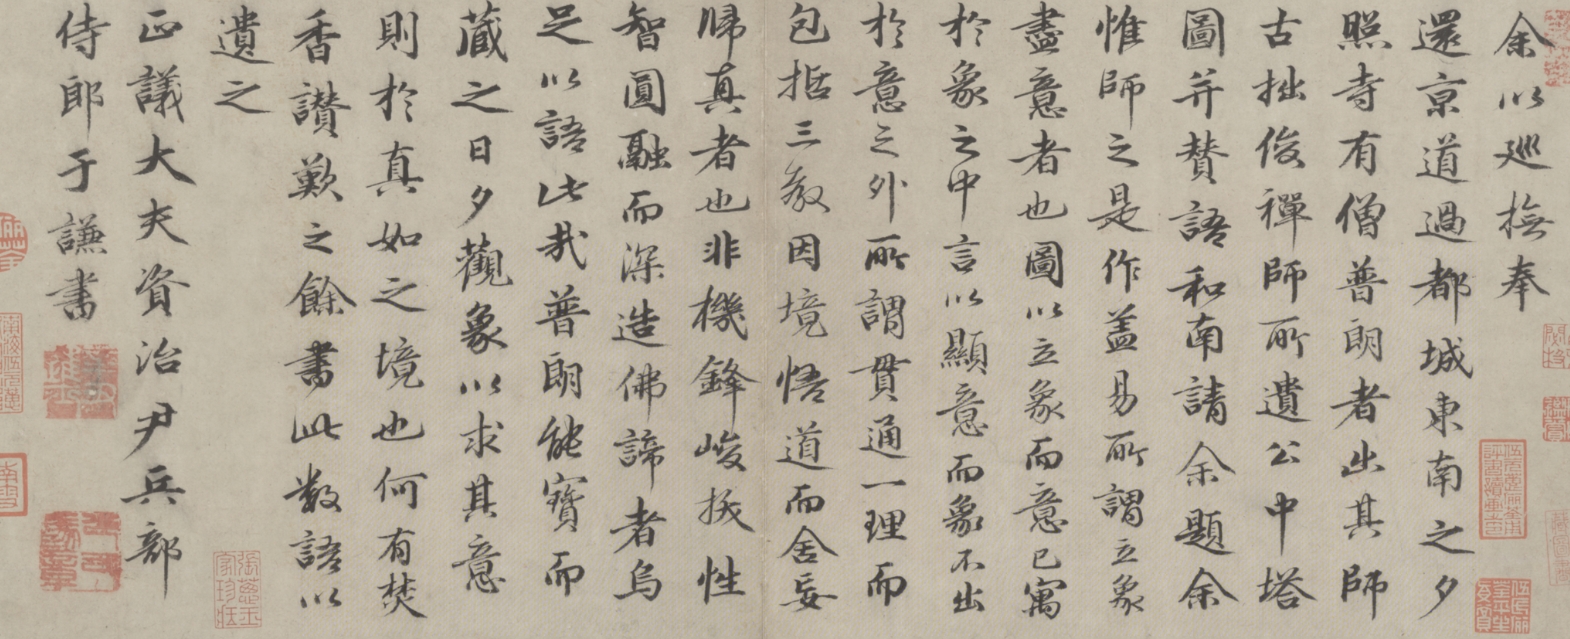 余以廵撫奉
還京道過都城東南之夕
照寺有僧普朗者出其師
古拙俊禪師所遺公中塔
圖并賛語和南請余題余
惟師之是作盖易所謂立象
盡意者也圖以立象而意已寓
於象之中言以顯意而象不出
於意之外所謂貫通一理而
包括三教因境悟道而舍妄
歸真者也非機鋒峻拔性
智圓融而深造佛諦者烏
足以語此哉普朗能寶而
藏之日夕觀象以求其意
則於真如之境也何有焚
香讃歎之餘書此數語以
遺之
正議大夫資治尹兵部
侍郎于謙書